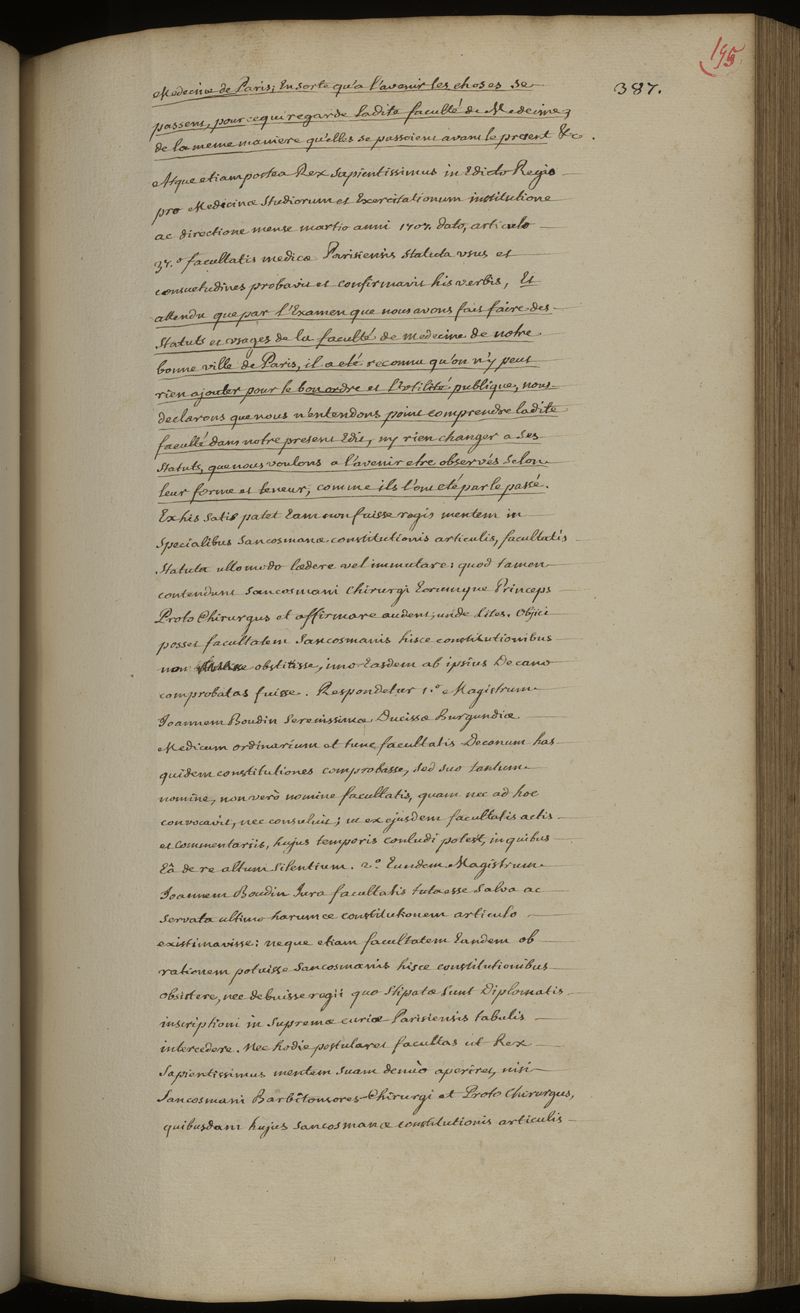 195
387.
Medecine de Paris; Ensorte qu'a l'avenir les choses se
passent, pour ce qui regarde ladite faculté de Medecine,
de la meme maniere qu'elles se passoient avant le present &c.
Atque etiam postea Rex sapientissimus in Edicto Regio
pro Medicinæ Studiorum et Exercitationum institutione
ac directione mense martio anni 1707. dato, articulo
37.º facultatis medicæ Parisiensis statuta usus et
consuetudines probavit et confirmavit his verbis, Et
attendu que par l'Examen que nous avons fait faire des
statuts et usages de la faculté de medecine de notre
bonne ville de Paris, il a eté reconnu qu'on n'y peut
rien ajouter pour le bon ordre et l'Utilité publique, nous
declarons que nous n'entendons point comprendre ladite
faculté dans notre present Edit, ny rien changer a ses
statuts, que nous voulons a l'avenir etre observés selon
leur forme et teneur, comme ils l'ont eté par le passé.
Ex his satis patet Eam non fuisse regis mentem in
specialibus Sancosmanæ constitutionis articulis, facultatis
statuta ullo modo lædere vel immutare: quod tamen
contendunt Sancosmani Chirurgi Eorumque Princeps
Proto Chirurgus et affirmare audent; unde lites. Objici
posset facultatem Sancosmanis hisce constitutionibus
non obstitisse, imo Easdem ab ipsius Decano
comprobatas fuisse. Respondetur 1.º Magistrum
Joannem Boudin Serenissimæ Ducissæ Burgundiæ
Medicum ordinarium et tunc facultatis Decanum has
quidem constitutiones comprobasse, sed suo tantum
nomine, non verò nomine facultatis, quam nec ad hoc
convocavit, nec consuluit; ut ex ejusdem facultatis actis
et Commentariis, hujus temporis conludi potest, in quibus
Eâ de re altum silentium. 2.º Eundem Magistrum
Joannem Boudin Jura facultatis tuta esse salva ac
servata ultimo harumce constitutionem articulo
existimavisse: neque etiam facultatem Eandem ob
rationem potuisse Sancosmanis hisce constitutionibus
obsistere, nec debuisse regii quo stipatæ sunt Diplomatis
inscriptioni in supremæ curiæ Parisiensis tabulis
intercedere. Nec hodie postularet facultas ut Rex
Sapientissimus mentem suam denùo aperiret, nisi
Sancosmani Barbitonsores-Chirurgi et Proto Chirurgus,
quibusdam hujus Sancosmanæ constitutionis articulis